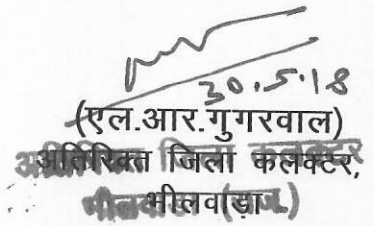 30.5.18
(एल.आर.गुगरवाल)
अतिरिक्त जिला कलक्टर,
भीलवाड़ा